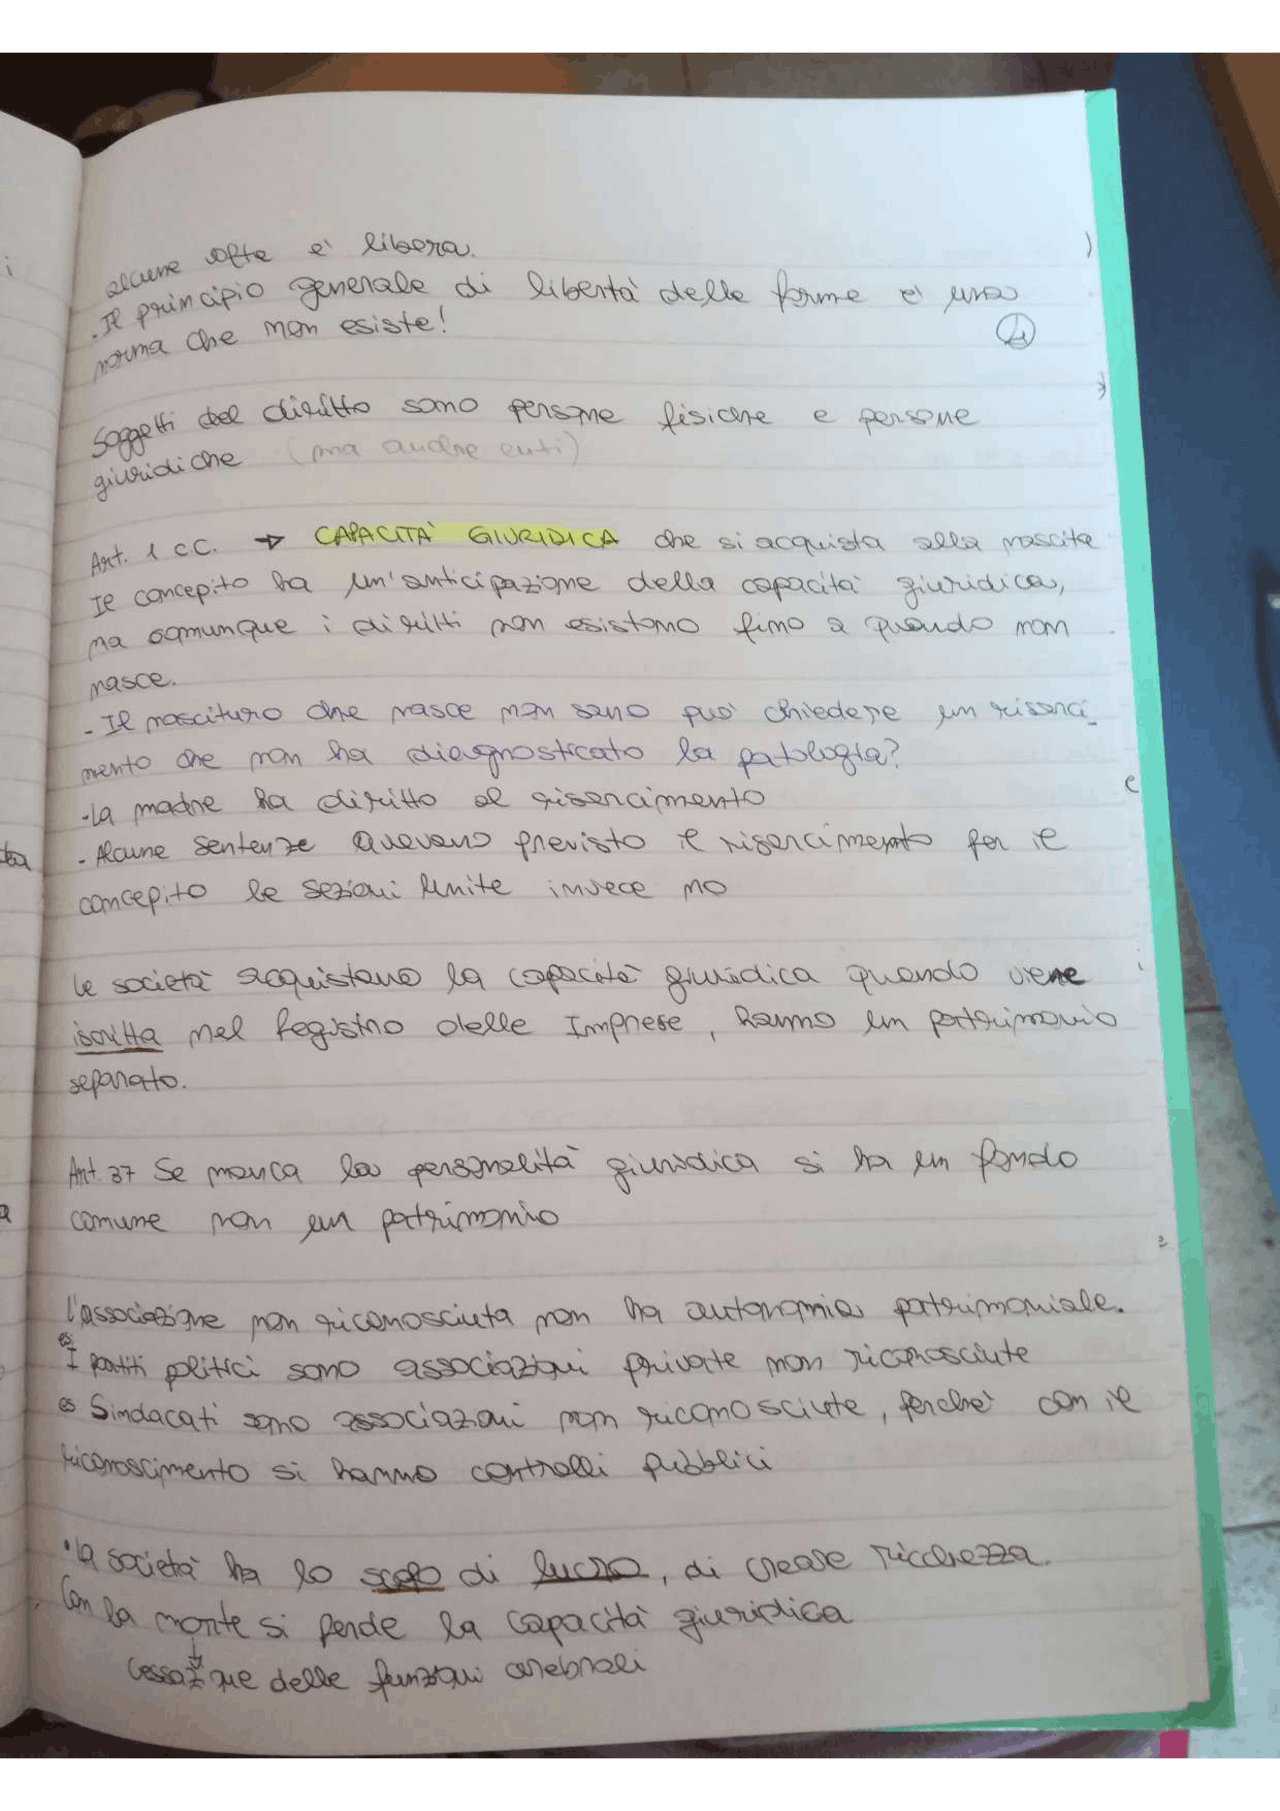 alcune volte e' libera.
- Il principio generale di libertà delle forme e' una
norma che non esiste!
4
Soggetti del diritto sono persone fisiche e persone
giuridiche (ma anche enti)
Art. 1 c.c. → CAPACITÀ GIURIDICA che si acquista alla nascita
Il concepito ha un'anticipazione della capacità giuridica,
ma comunque i diritti non esistono fino a quando non
nasce.
- Il nascituro che nasce non sano può chiedere un risarci_
mento che non ha diagnosticato la patologia?
- La madre ha diritto al risarcimento
- Alcune sentenze avevano previsto il risarcimento per il
concepito le Sezioni Unite invece no
le società acquistano la capacità giuridica quando viene
iscritta nel Registro delle Imprese, hanno un patrimonio
separato.
Art. 37 Se manca la personalità giuridica si ha un fondo
comune non un patrimonio
l'associazione non riconosciuta non ha autonomia patrimoniale.
es I partiti politici sono associazioni private non riconosciute
es Sindacati sono associazioni non riconosciute, perché con il
riconoscimento si hanno controlli pubblici
• la società ha lo scopo di lucro, di creare ricchezza.
Con la morte si perde la capacità giuridica
↓
cessazione delle funzioni cerebrali